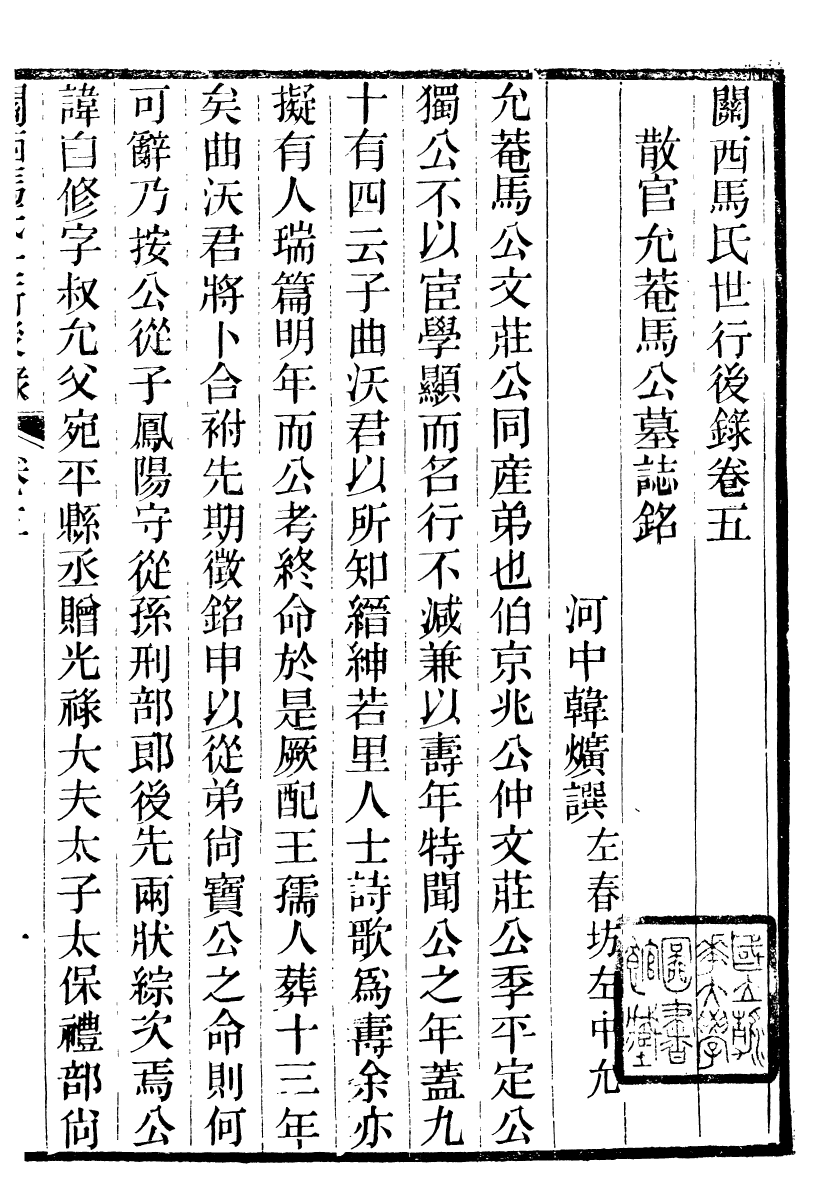 關西馬氏世行後錄卷五
散官允菴馬公墓誌銘
河中韓爌譔左春坊左中允
允菴馬公文莊公同産弟也伯京兆公仲文莊公季平定公
獨公不以宦學顯而名行不減兼以壽年特聞公之年蓋九
十有四云子曲沃君以所知縉紳若里人士詩歌爲壽余亦
擬有人瑞篇明年而公考終命於是厥配王孺人葬十三年
矣曲沃君將卜合祔先期徵銘申以從弟尙寶公之命則何
可辭乃按公從子鳳陽守從孫刑部郎後先兩狀綜次焉公
諱自修字叔允父宛平縣丞贈光祿大夫太子太保禮部尙
國立清華大學圖書館藏